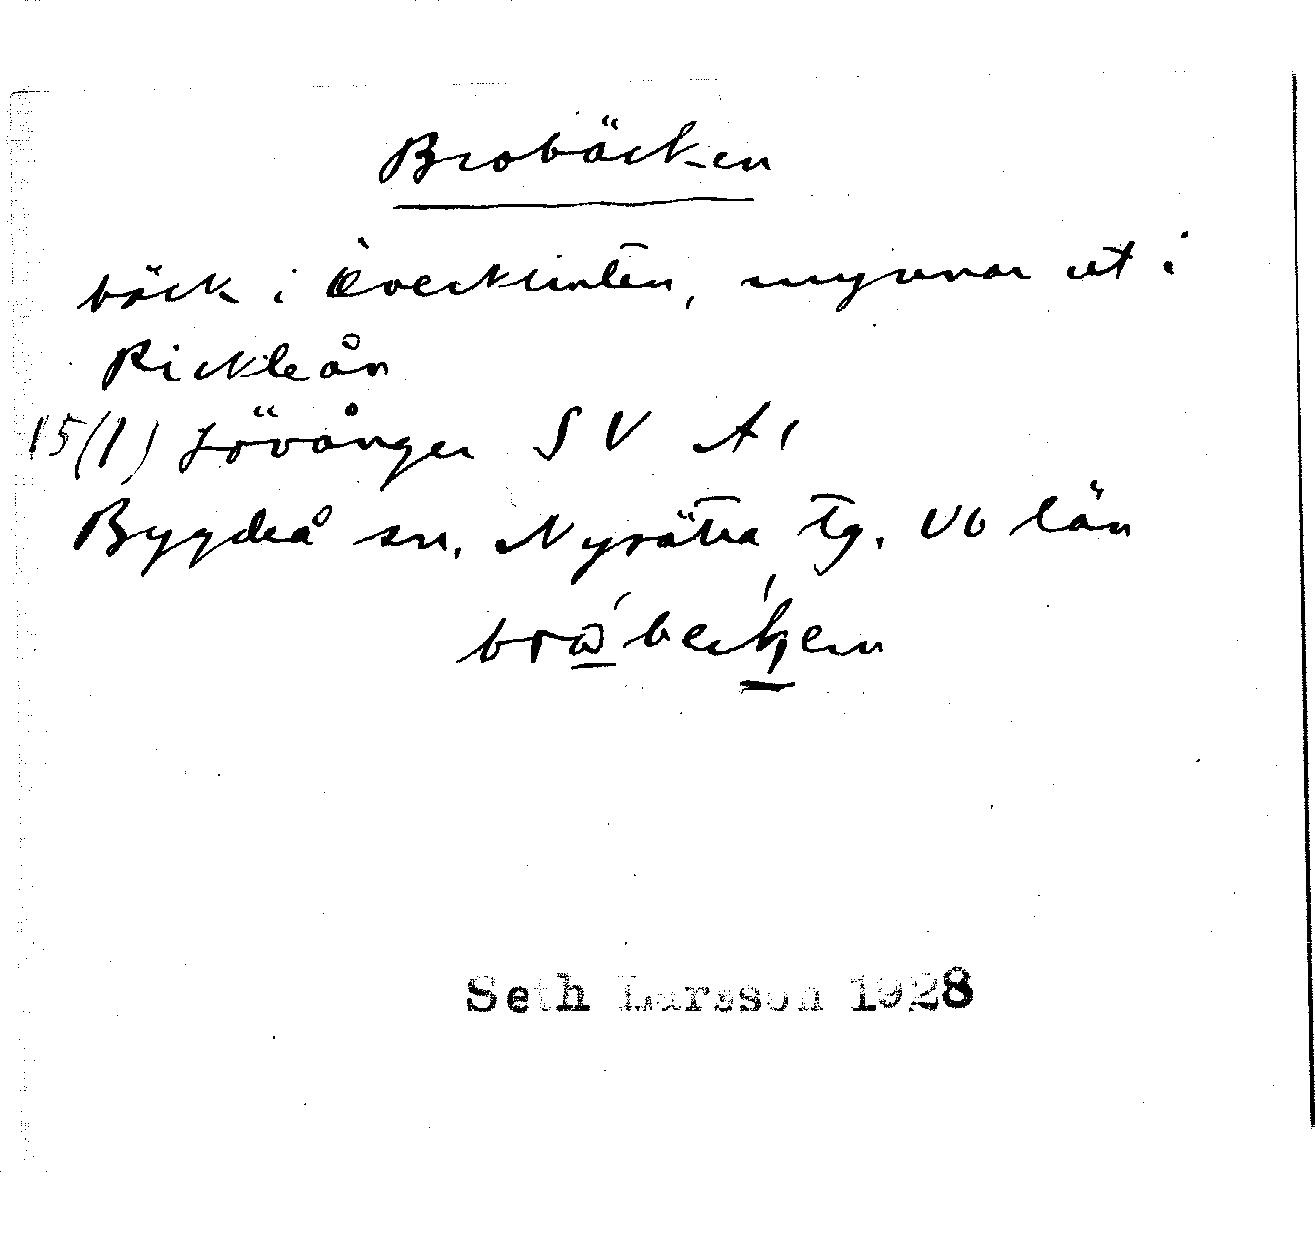 Brobäcken
bäck i Överklinten, mynnar ut i
Rickleån
15(1) Lövånger SV A1
Bygdeå sn, Nysätra tg. Vb län
Seth Larsson 1928